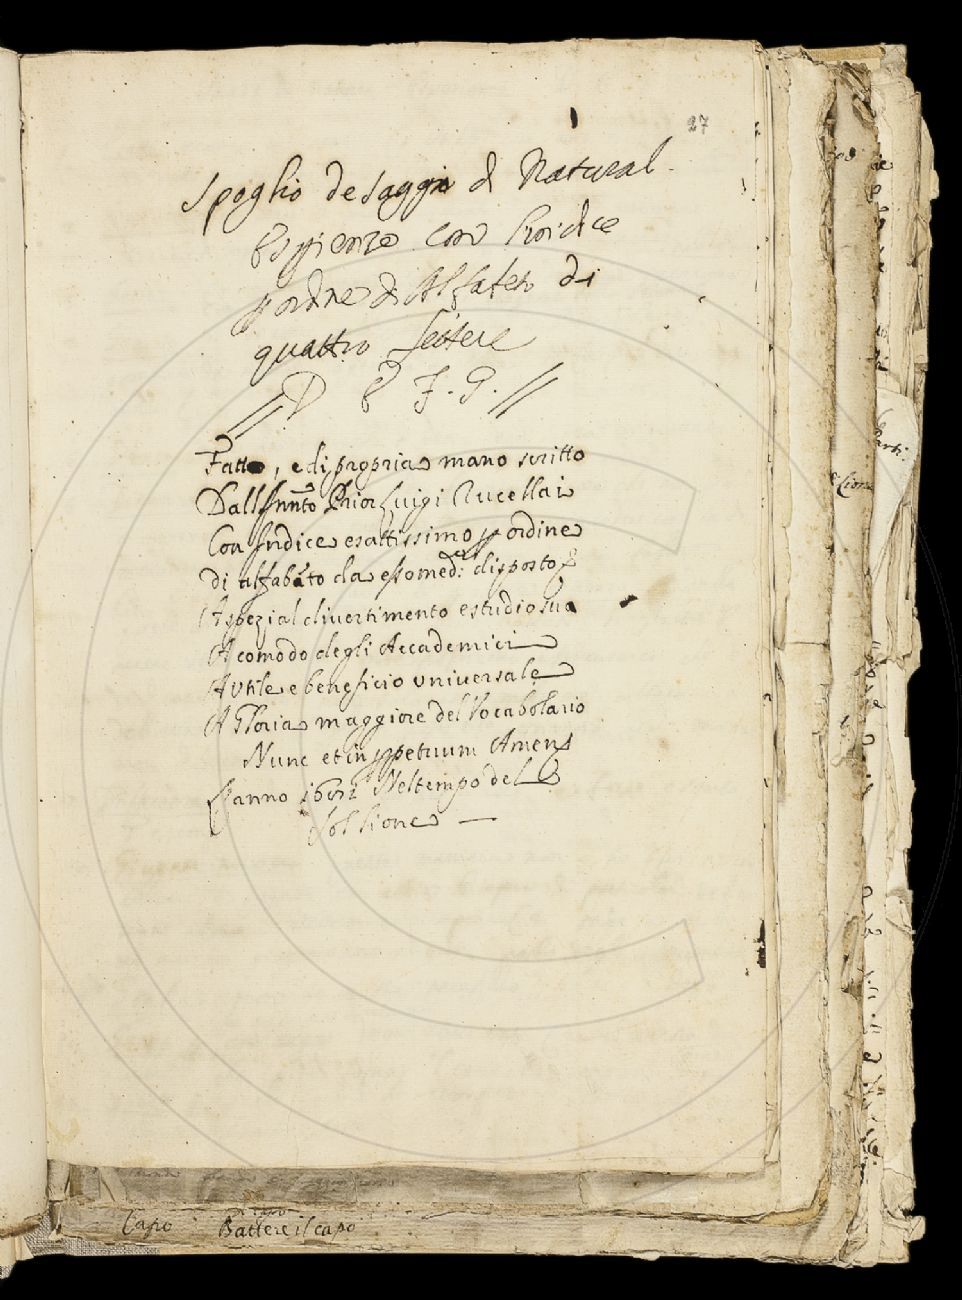 27
Spoglio de saggi di Natural
Esperienze con Indice
p ordine di Alfabeto di
quattro lettere
D E F. G.
Fatto, e di propria mano scritto
Dall Innto Prior Luigi Rucellai
Con Indice esattissimo p ordine
di alfabeto da esso med: disposto
P spezial divertimento e studio sua
A comodo degli Accademici
A Utile e beneficio universale
A Gloria maggiore del Vocabolario
Nunc et in ppetuum Amen
L'anno Nel tempo del
Sollione
Capo Battere il capo